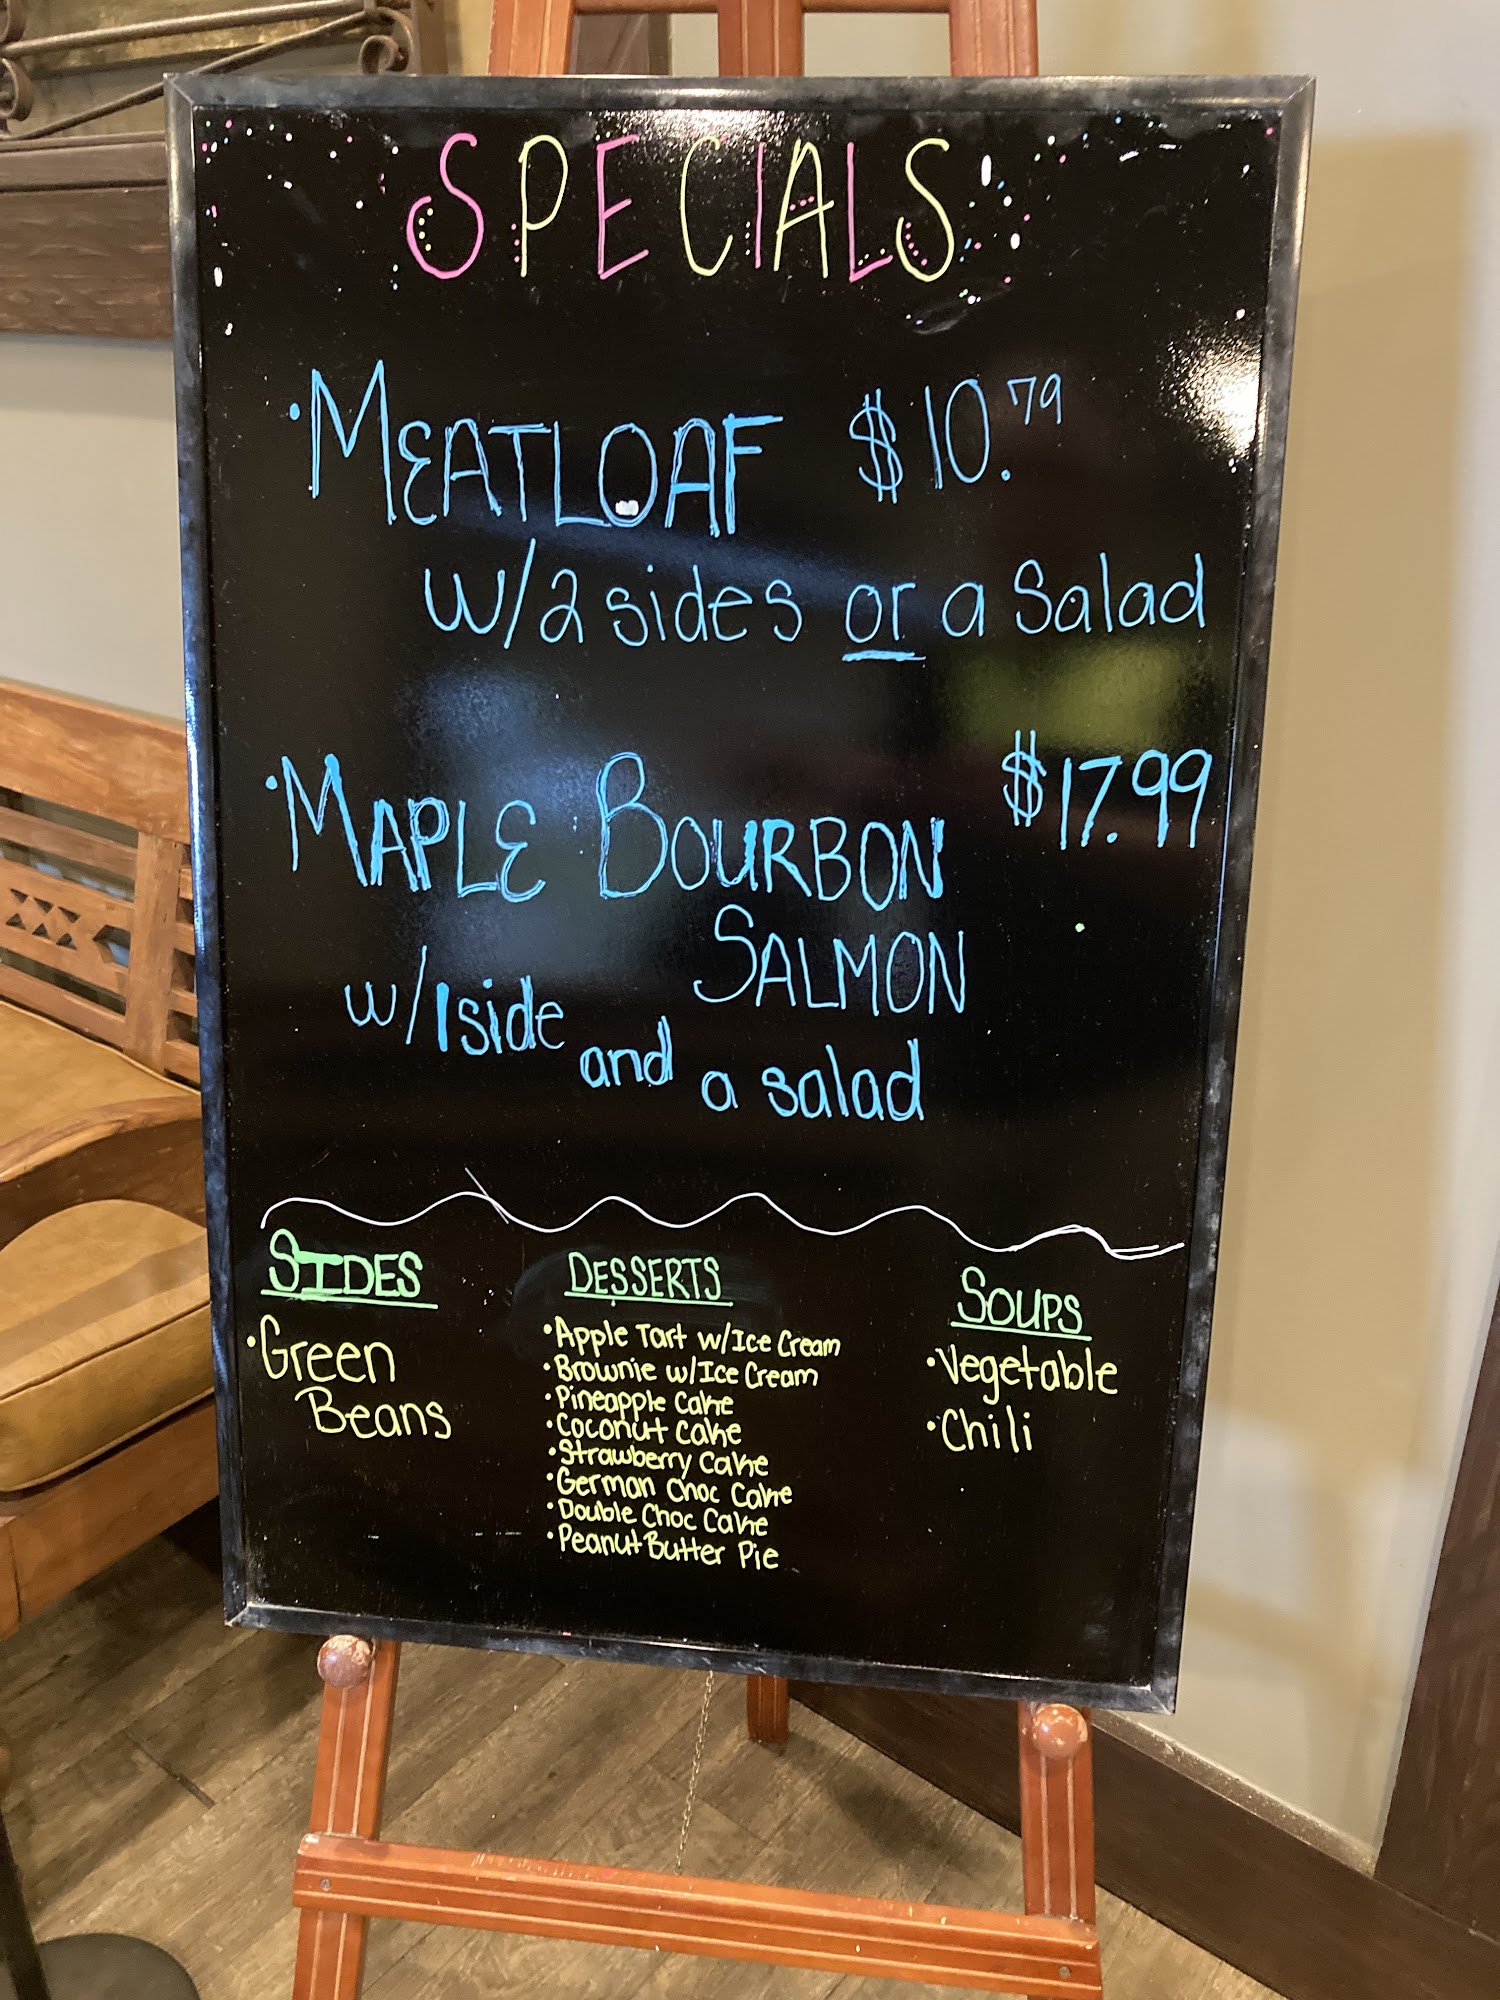 SPECIALS
• MEATLOAF $10.79
w/2 sides or a Salad
• MAPLE BOURBON $17.99
SALMON
w/1 side and a salad
SIDES
• Green
Beans
DESSERTS
• Apple Tart w/Ice Cream
• Brownie w/Ice Cream
• Pineapple Cake
• Coconut Cake
• Strawberry Cake
• German Choc Cake
• Double Choc Cake
• Peanut Butter Pie
SOUPS
• Vegetable
• Chili